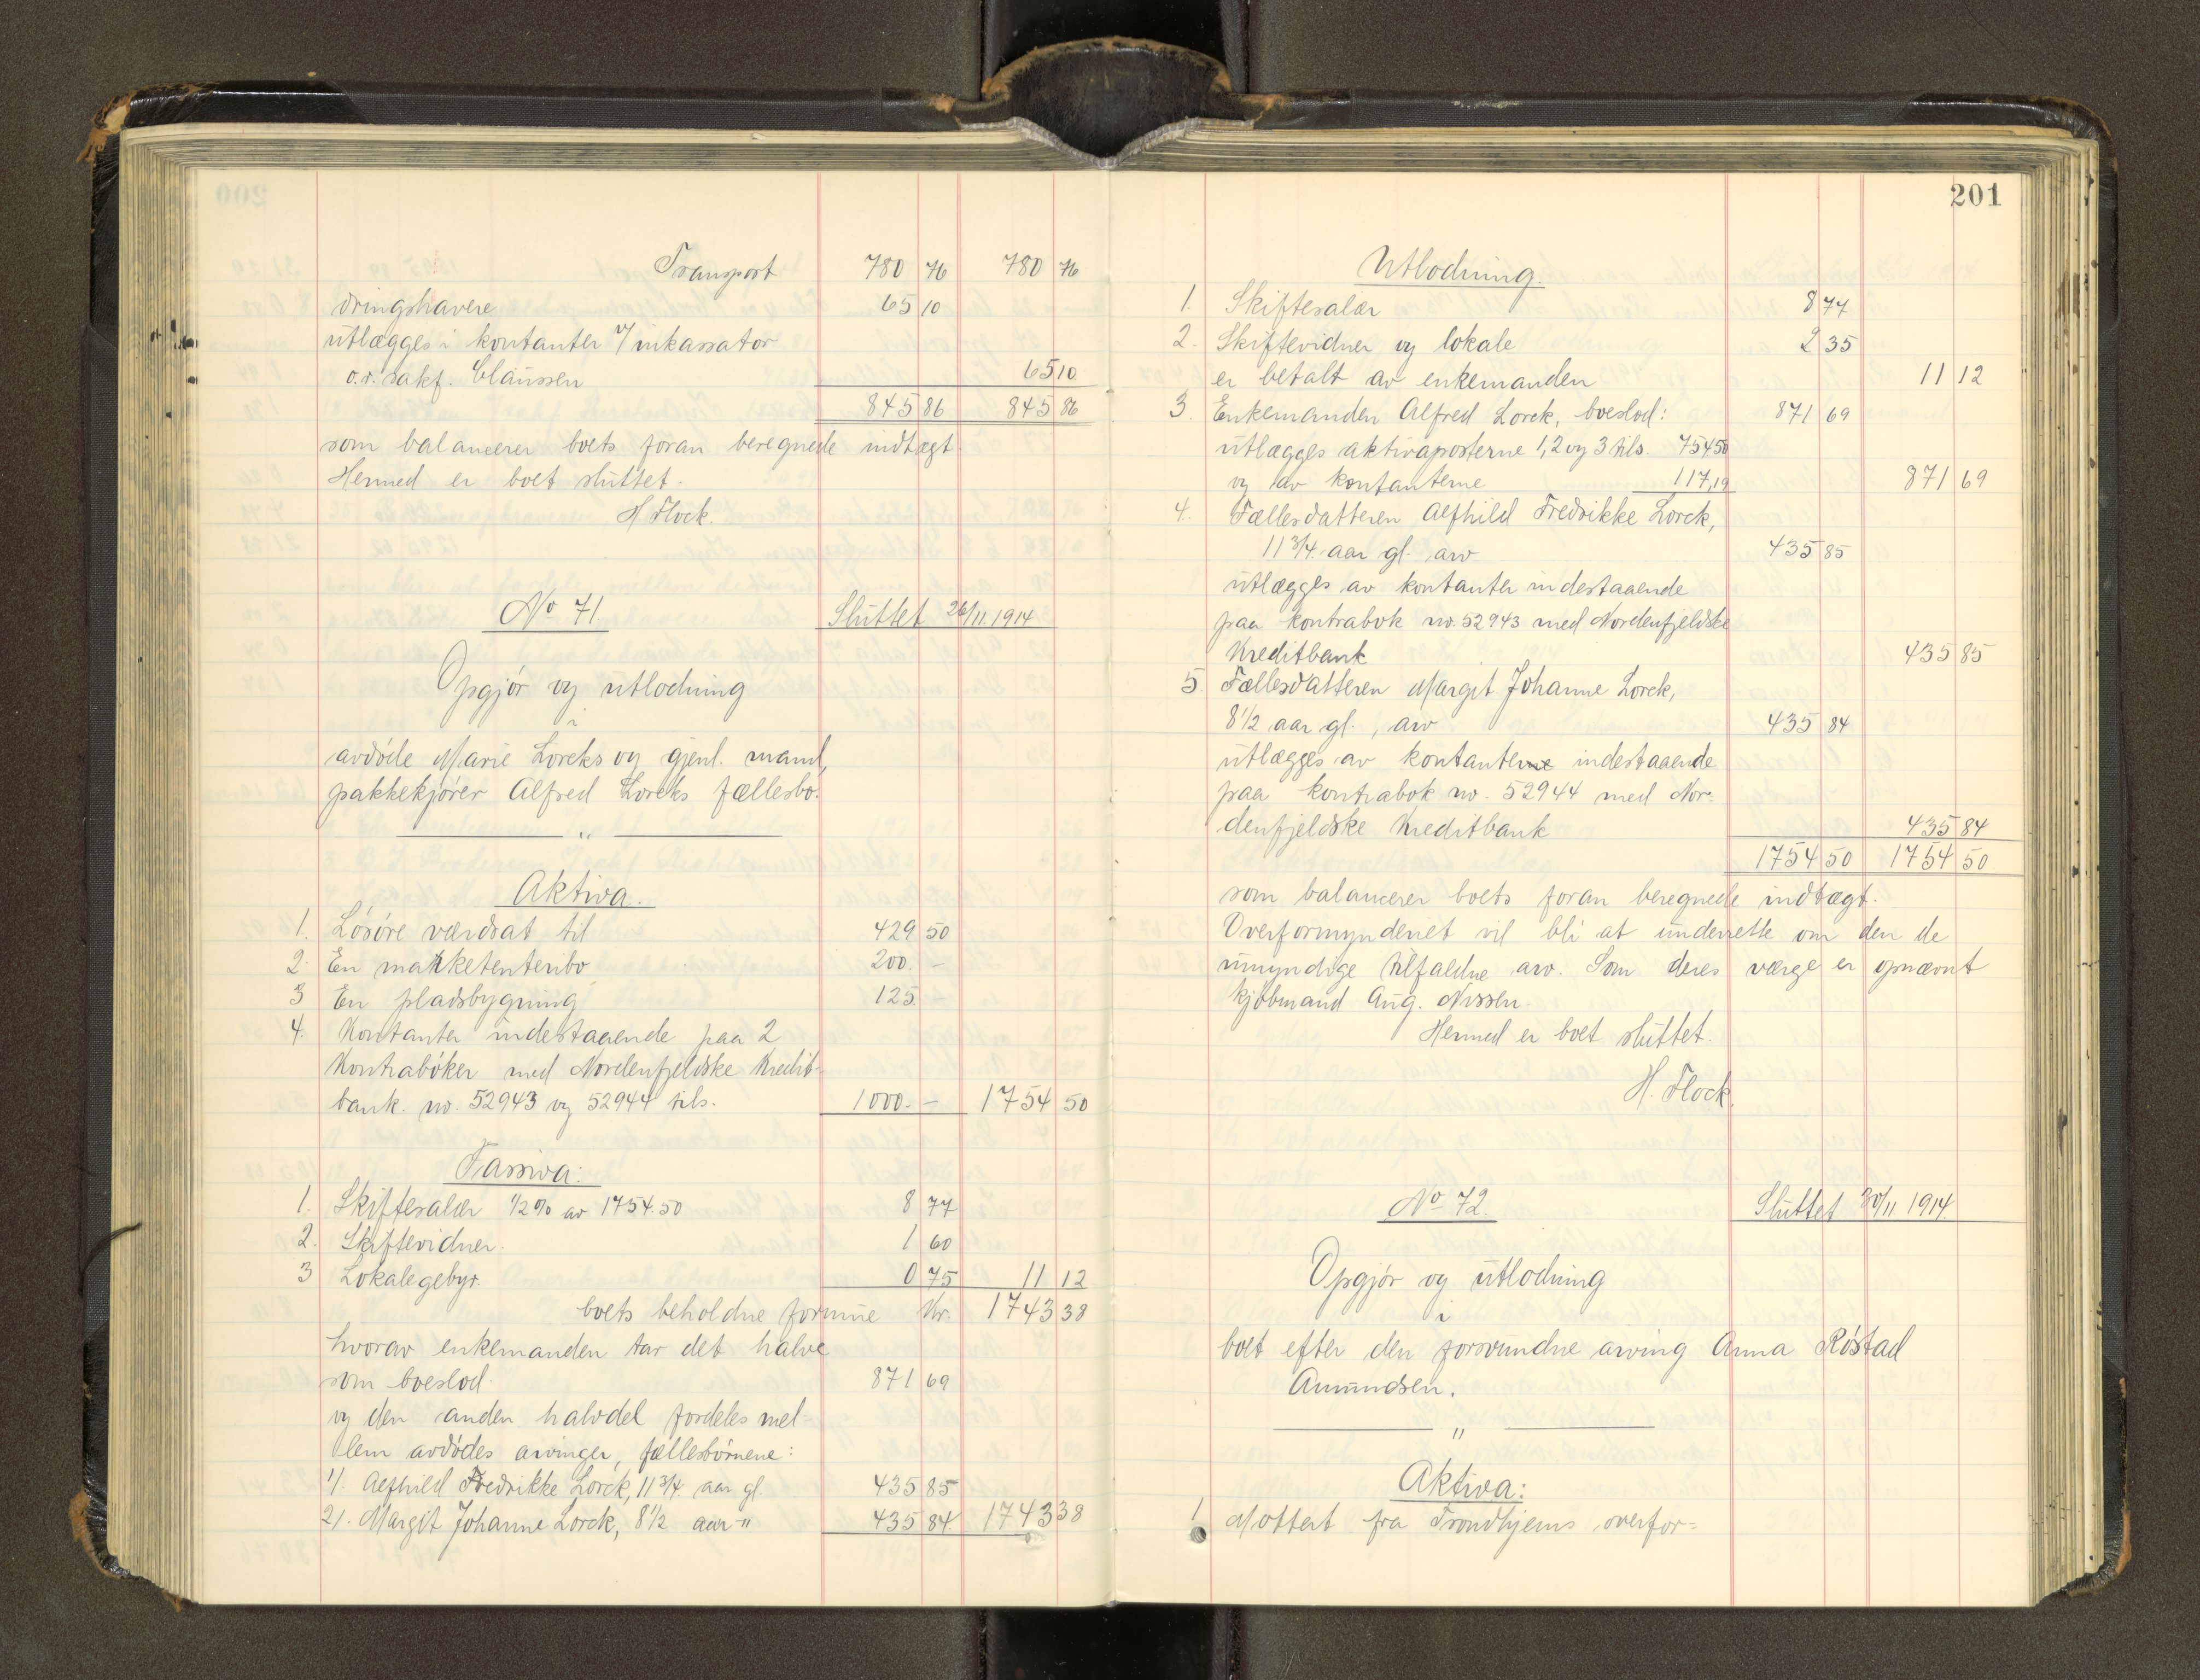 Transport 780 76 780 76
dringshavere 65 10
utlægges i kontanter v/ inkassator
o.r. sakf. Claussen 65 10
845 86 845 86
som balancerer boets foran beregnede indtægt.
Hermed er boet sluttet.
H Flock.
No 71. Sluttet 26/11 1914
Opgjør og utlodning
i
avdøde Marie Lorcks og gjenl. mand,
pakkekjører Alfred Lorcks fællesbo.
"
Aktiva.
1. Løsøre værdsat til 429 50
2. En marketenteribo 200. -
3 En pladsbygning 125. -
4. Kontanter indestaaende paa 2
Kontrabøker med Nordenfjeldske Kredit-
bank. no. 52943 og 52944 tils. 1000. - 1754 50
Passiva:
1. Skiftesalær 1/2 % av 1754.50 8 77
2. Skiftevidner. 1 60
3 Lokalegebyr. 0 75 11 12
boets beholdne formue Kr. 1743 38
hvorav enkemanden tar det halve
som boeslod 871 69
og den anden halvdel fordeles mel-
lem avdødes arvinger, fællesbørnene:
1/. Alfhild Fredrikke Lorck, 11 3/4 aar gl. 435 85
2/. Margit Johanne Lorck, 8 1/2 aar " 435 84. 1743 38
201
Utlodning.
1. Skiftesalær 8 77
2. Skiftevidner og lokale 2 35
er betalt av enkemanden 11 12
3. Enkemanden Alfred Lorck, boeslod: 871 69
utlægges aktivaposterne 1, 2 og 3 tils. 754 50
og av kontanterne 117,19 871 69
4. Fællesdatteren Alfhild Fredrikke Lorck,
11 3/4. aar gl. arv 435 85
utlægges av kontanter indestaaende
paa kontrabok no. 52943 med Nordenfjeldske
Kreditbank 435 85
5. Fællesdatteren Margit Johanne Lorck,
8 1/2 aar gl., arv 435 84
utlægges av kontanterne indestaaende
paa kontrabok no. 52944 med Nor-
denfjeldske Kreditbank 435 84
1754 50 1754 50
som balancerer boets foran beregnede indtægt.
Overformynderiet vil bli at underrette om den de
umyndige tilfaldne arv. Som deres værge er opnævnt
kjøbmand Aug. Nissen.
Hermed er boet sluttet.
H. Flock.
No 72. Sluttet 30/11 1914.
Opgjør og utlodning
i
boet efter den forsvundne arving Anna Røstad
Amundsen.
"
Aktiva:
1 Mottert fra Trondhjems overfor=